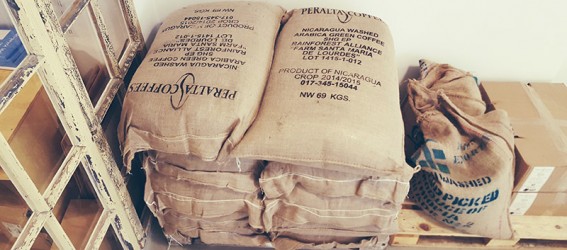 PERALTA COFFEES
NICARAGUA WASHED
ARABICA GREEN COFFEE
SHG EP
RAINFOREST ALLIANCE
"FARM SANTA MARIA
DE LOURDES"
LOT 1415-1-012
PRODUCT OF NICARAGUA
CROP 2014/2015
017-345-15044
NW 69 KGS.
PERALTA COFFEES
NICARAGUA WASHED
ARABICA GREEN COFFEE
SHG EP
RAINFOREST ALLIANCE
"FARM SANTA MARIA
DE LOURDES"
LOT 1415-1-012
CROP 2014/2015
017-345-15
WASHED
PICKED